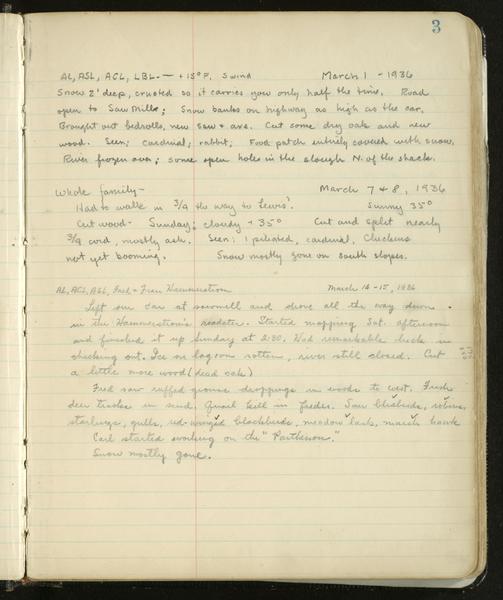 3
AL, ASL, ACL, LBL — +15°F, S wind March 1 - 1936
Snow 2' deep, crusted so it carries you only half the time. Road
open to Saw Mills; Snow banks on highway as high as the car.
Brought out bedrolls, new saw & axe. Cut some dry oak and new
wood. Seen: Cardinal; rabbit; Food patch entirely covered with snow.
River frozen over; some open holes in the slough N. of the shack.
Whole family— March 7 & 8, 1936
Had to walk in 3/4 the way to Lewis'. Sunny 35°
Cut wood- Sunday: cloudy + 35° Cut and split nearly
3/4 cord, mostly ash. Seen: 1 pileated, cardinal, Chickens
not yet booming. Snow mostly gone on south slopes.
AL, ACL, ASL, Fred & Fran Hammerstrom March 14-15, 1936
Left our car at sawmill and drove all the way down
in the Hammerstrom's roadster. Started mapping Sat. afternoon
and finished it up Sunday at 2:30. Had remarkable luck in
checking out. Ice on lagoon rotten, river still closed. Cut
a little more wood (dead oak)
Fred saw ruffed grouse droppings in woods to west. Fresh
deer tracks in sand. Quail kill in feeder. Saw bluebirds, robins,
starlings, gulls, red-winged blackbirds, meadow lark, marsh hawk
Carl started working on the "Parthenon."
Snow mostly gone.